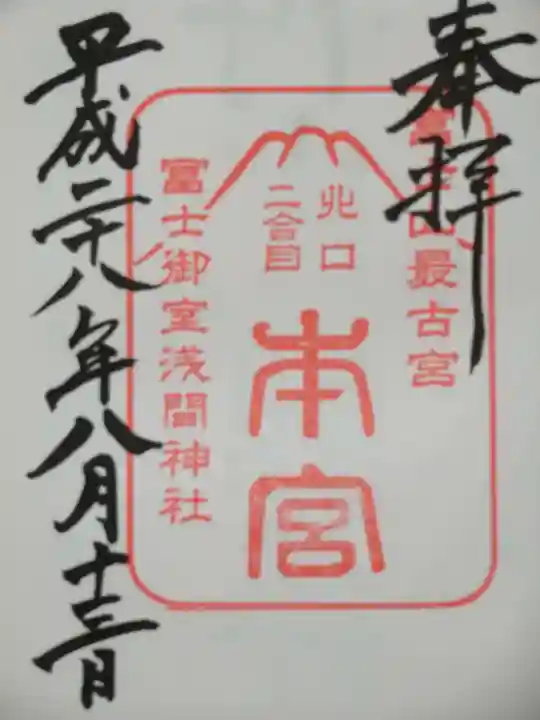 奉拝
富士山最古宮
北口
二合目
本宮
冨士御室浅間神社
平成二十八年八月十三日